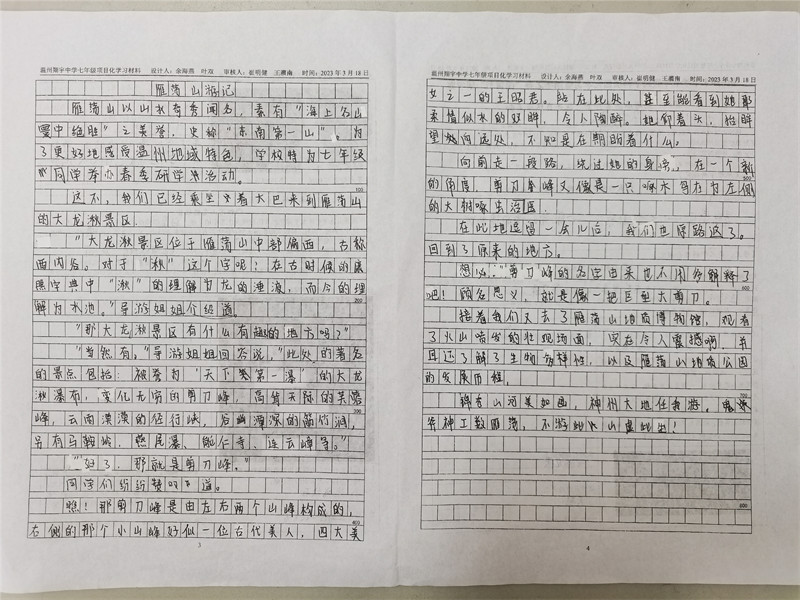 温州翔宇中学七年级项目化学习材料 设计人：余海燕 叶双 审核人：崔明健 王露南 时间：2023年3月18日
雁荡山游记
雁荡山以山水奇秀闻名，素有“海上名山
寰中绝胜”之美誉，史称“东南第一山”。为
了更好地感受温州地域特色，学校特为七年级
同学举办春季研学活动。
100
这不，我们已经乘坐着大巴来到雁荡山
的大龙湫景区。
“大龙湫景区位于雁荡山中部偏西，古称
面内谷。对于“湫”这个字呢！在古时候的康
熙字典中“湫”的理解为龙的潭渡，而今的理
200
解为水池。”导游姐姐介绍道。
“那大龙湫景区有什么有趣的地方吗？”
“当然有，”导游姐姐回答说，“此处的著名
的景点包括：被誉为‘天下第一瀑’的大龙
湫瀑布，变化无穷的剪刀峰，高耸天际的芙蓉
300
峰，云雨漠漠的经行峡，后幽潭深的筋竹涧，
另有马鞍岭，燕尾瀑、能仁寺、连云嶂等。”
“好了，那就是剪刀峰。”
同学们纷纷赞叹道。
瞧！那剪刀峰是由左右两个山峰构成的，
400
右侧的那个小山峰好似一位古代美人，四大美
3
温州翔宇中学七年级项目化学习材料 设计人：余海燕 叶双 审核人：崔明健 王露南 时间：2023年3月18日
女之一的王昭君。站在此处，甚至能看到她那
柔情似水的双眸，令人陶醉。她仰着头，抬眸
望向远处，不知是在期盼着什么。
向前走一段路，绕过她的身，在一个新
500
的角度，剪刀峰又像是一只啄木鸟在为左侧
的大树啄虫治医。
在此地逗留一会儿后，我们也原路返了。
回到了原来的地方。
想必“剪刀”峰的名字由来也不用多解释了
600
吧！顾名思义，就是像一把巨型大剪刀。
接着我们又去了雁荡山地质博物馆，观看
了火山喷发的壮观场面，实在令人震撼啊。并
且还了解了生物多样性，以及雁荡山地质公园
的发展历程。
700
锦秀山河美如画，神州大地任我游。鬼斧
神工数雁荡，不游此山虚此出！
800
4